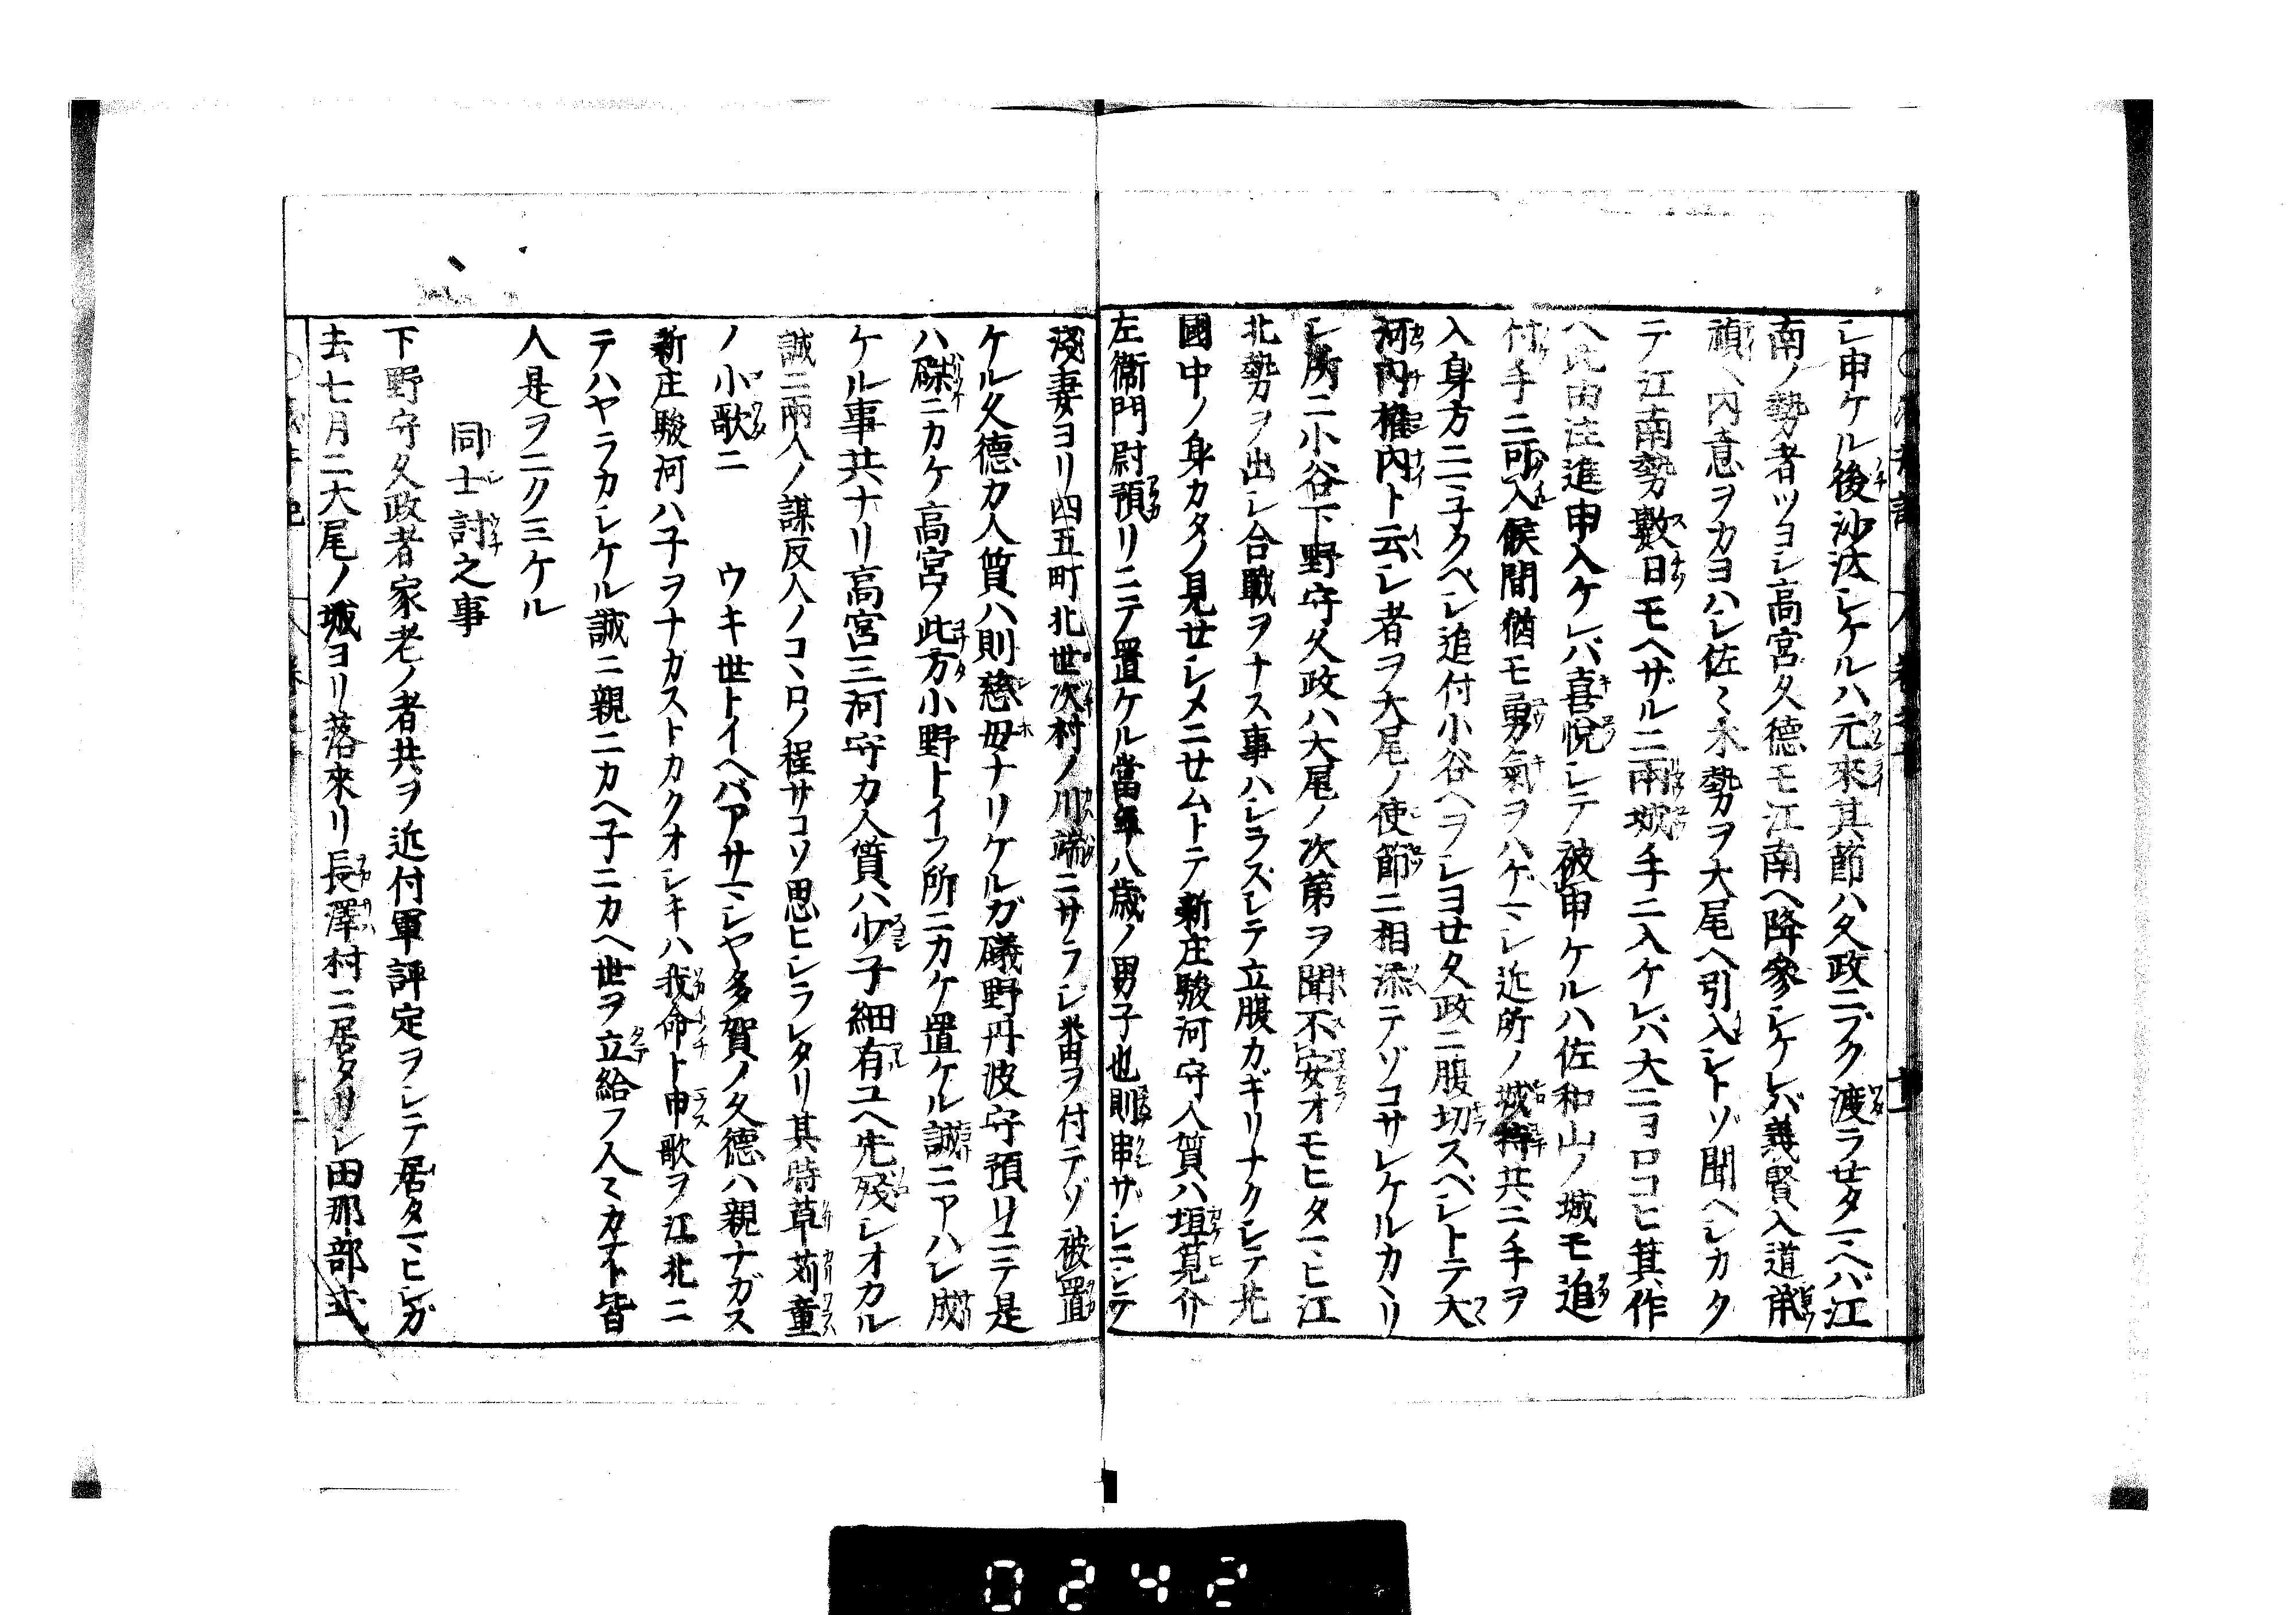 シ申ケル後沙汰シケルハ元來其節ハ久政ニブク渡ラせタマヘバ江
南ノ勢者ツヨシ高宮久德モ江南へ降參シケレバ義賢入道甫
頑へ内意ヲカヨハシ佐々木勢ヲ大尾へ引入シトゾ聞ヘシカク
テ江南勢數日モヘザルニ兩城手ニ入ケレバ大ニヨロコヒ其作
へ此由注進申入ケレバ喜悅シテ被申ケルハ佐和山ノ城モ追
付手ニ可入候間猶モ勇氣ヲハゲマシ近所ノ城持共ニ手ヲ
入身方ニ子クベシ追付小谷ヘヲシヨせ久政ニ腹切スベシトテ大
河内權内ト云シ者ヲ大尾ノ使節ニ相添ニテゾコサレケルカヽリ
シ所ニ小谷下野守久政ハ大尾ノ次第ヲ聞不安オモヒタマヒ江
北勢ヲ出シ合戰ヲナス事ハシラズシテ立腹カギリナクシテ北
國中ノ身カタノ見せシメニせムトテ新庄駿河守人質ハ垣見介
左衞門尉預リニテ置ケル當年八歳ノ男子也則串ザシニシテ
淺妻ヨリ四五町北世次村ノ川端ニサラシ番ヲ付テゾ被置
ケル久德カ人質ハ則慈母ナリケルガ礒野丹波守預リニテ是
ハ磔ニカケ高宮ノ此方小野トイフ所ニカケ置ケル誠ニアハレ成
ケル事共ナリ高宮三河守カ人質ハ少子細有ユヘ先殘シオカル
誠ニ兩人ノ謀反人ノコヽロノ程サコソ思ヒシラレタリ其時草苅童
ノ小歌ニ　ウキ世トイヘバアサマシヤ多賀ノ久德ハ親ナガス
新庄駿河ハ子ヲナガストカクオシキハ我命ト申歌ヲ江北ニ
テハヤラカシケル誠ニ親ニカヘ子ニカヘ世ヲ立給フ人々カナト皆
人是ヲニクミケル
同士討之事
下野守久政者家老ノ者共ヲ近付軍評定ヲシテ居タマヒシガ
去七月ニ大尾ノ城ヨリ落來リ長澤村ニ居タリシ田那部式
0242